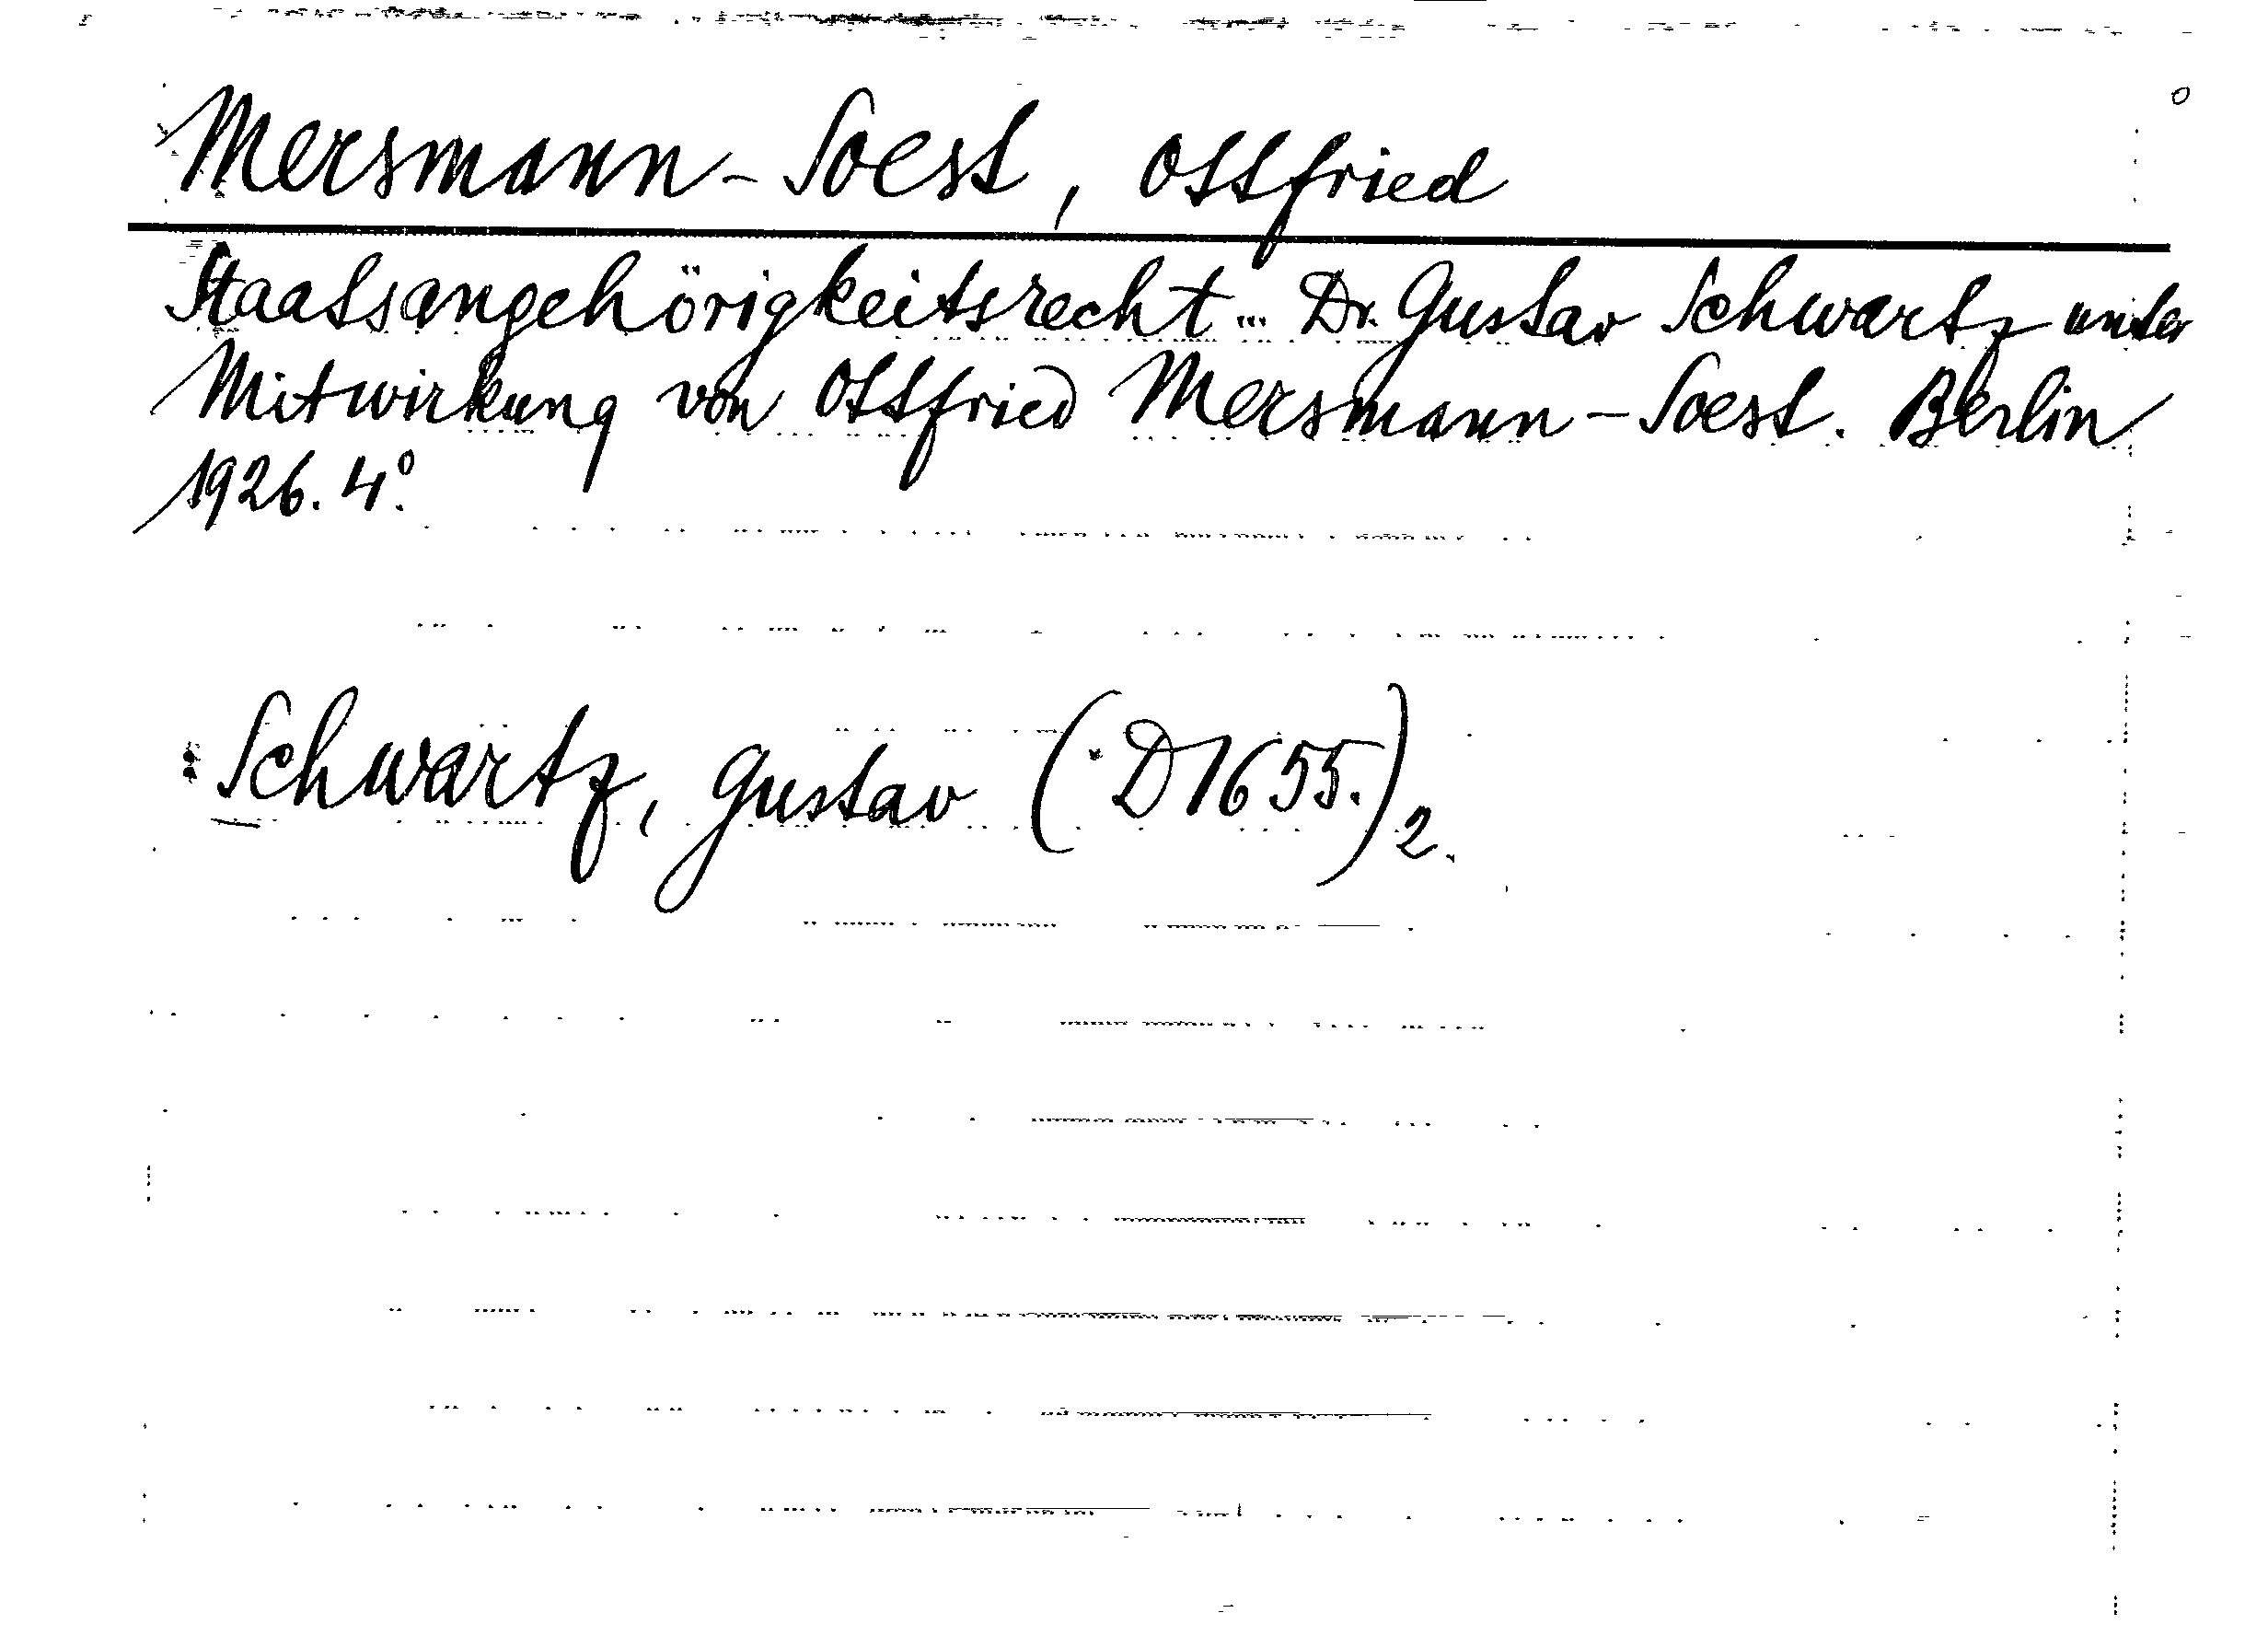 Mersmann-Soest, Ottfried
Staatsangehörigkeitsrecht... Dr. Gustav Schwartz unter
Mitwirkung von Ottfried Mersmann-Soest. Berlin
1926. 4°.
: Schwartz, Gustav (D1655.)2.